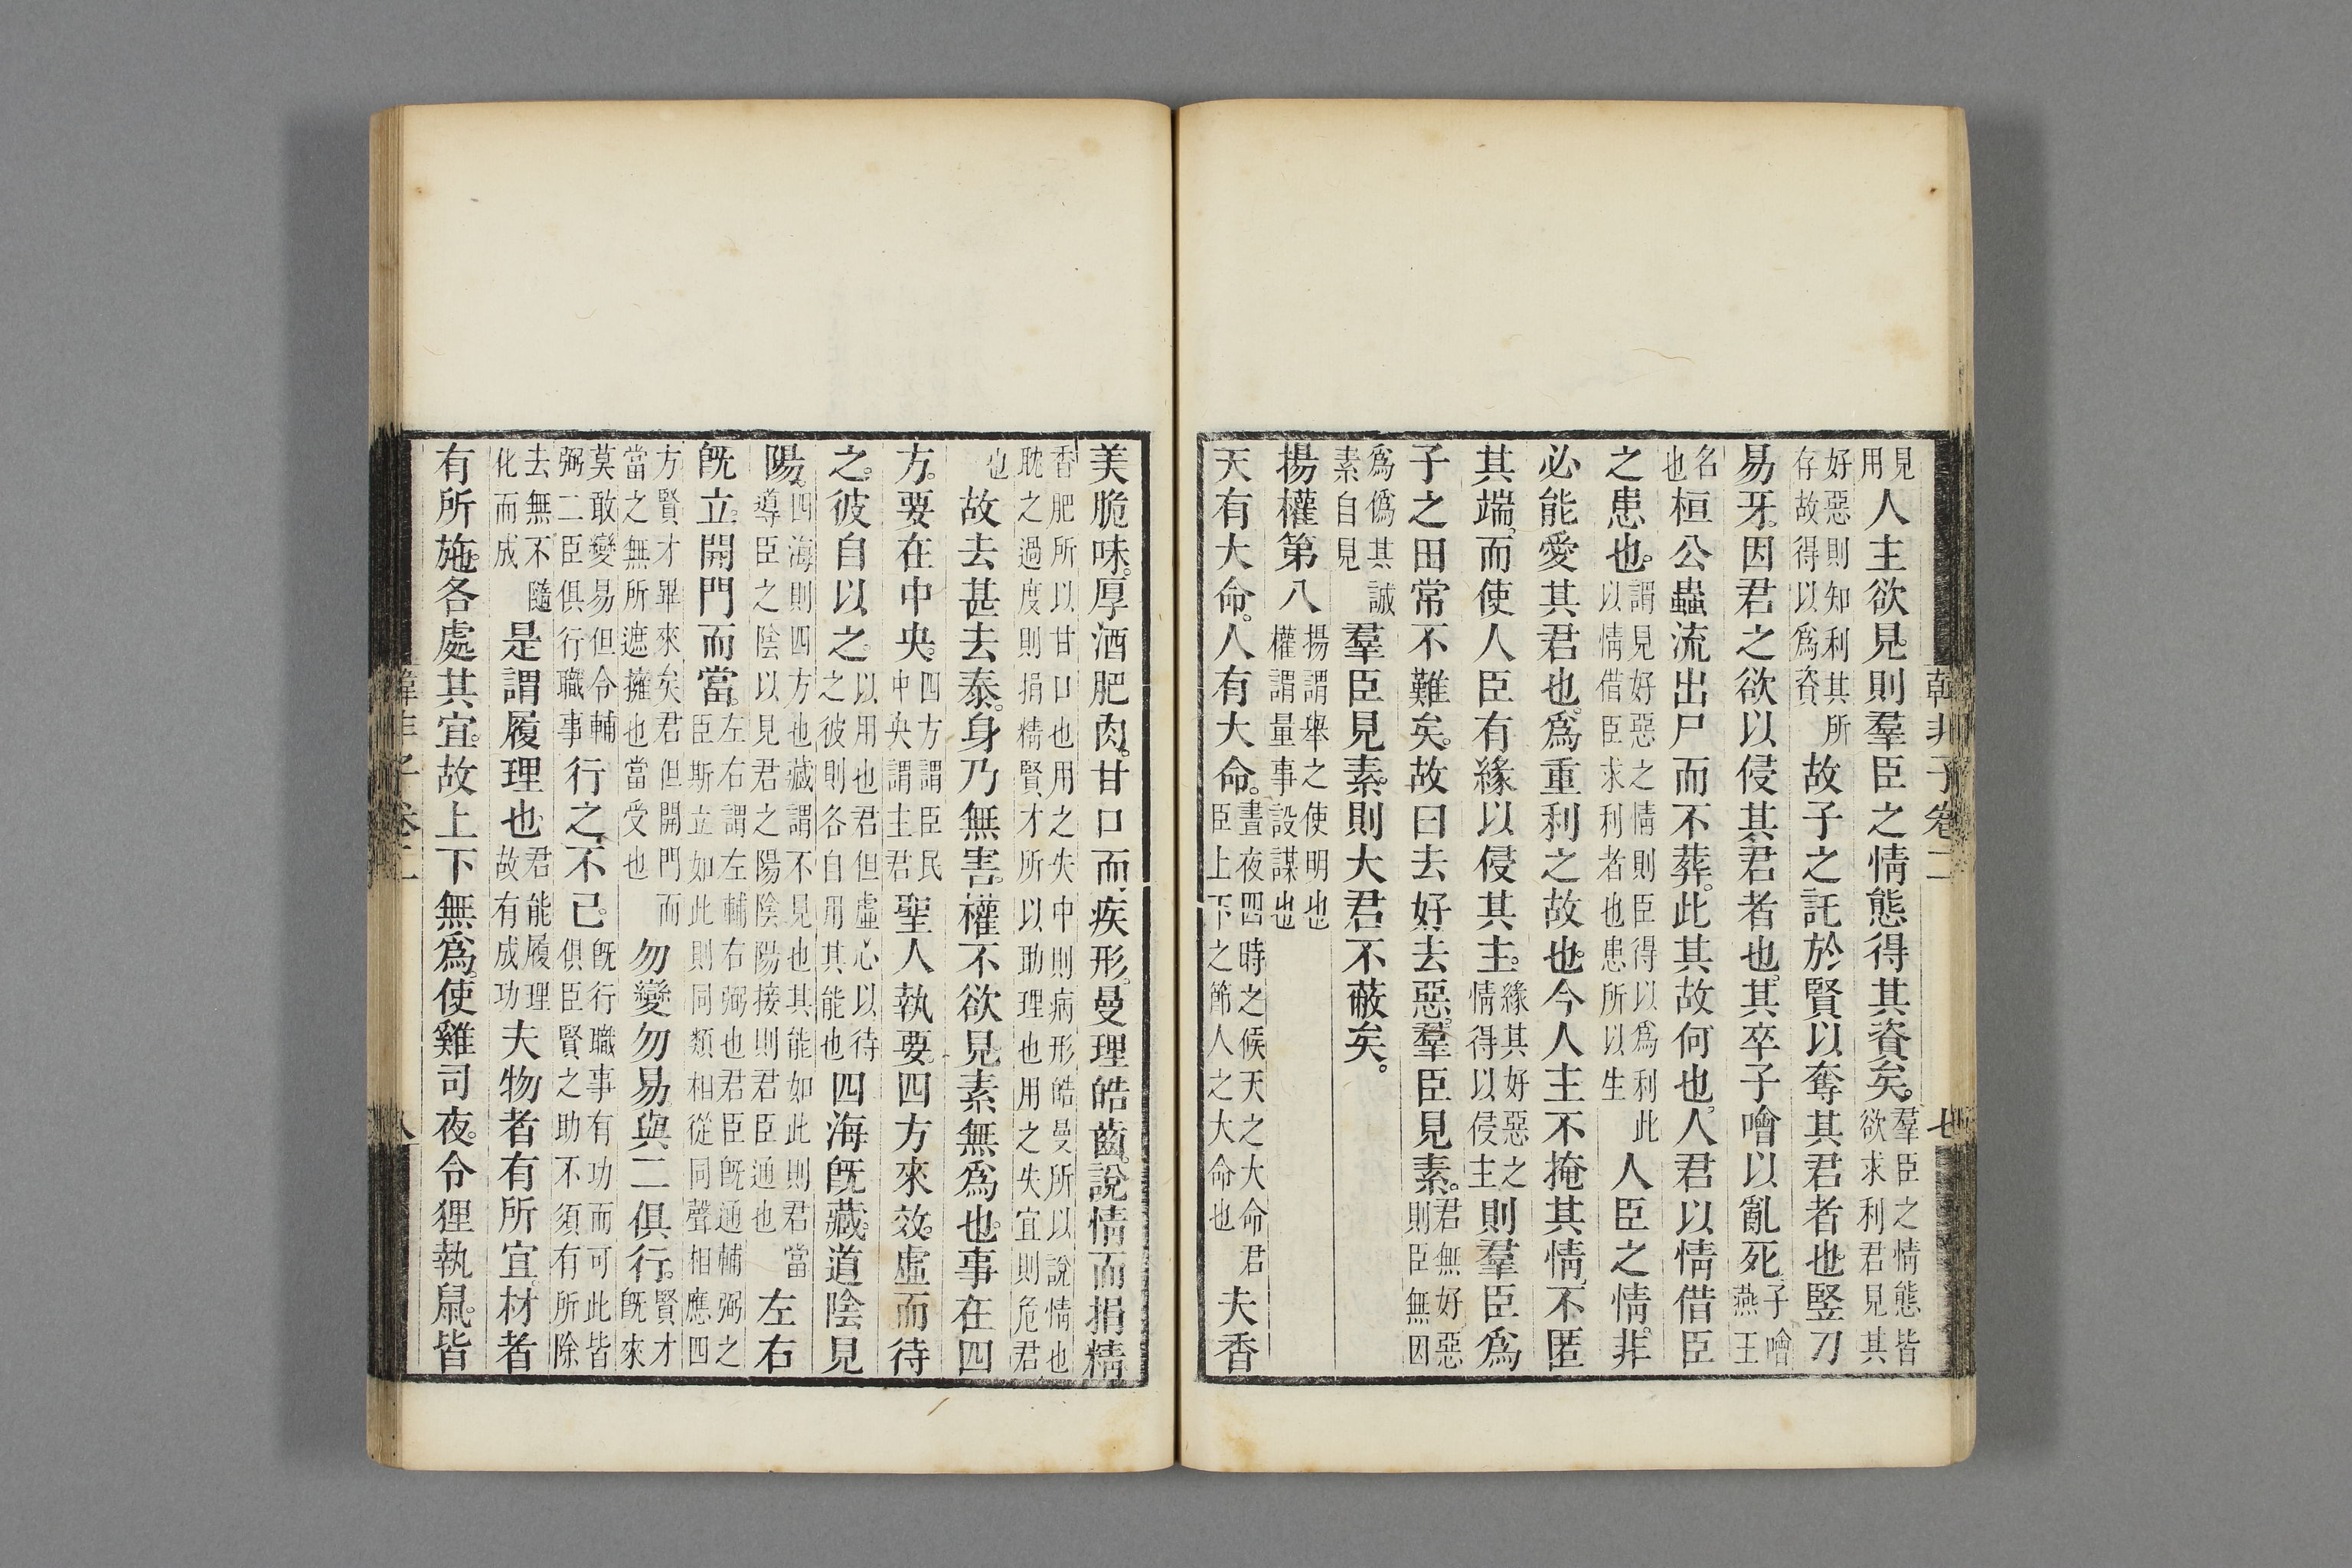 韓非子卷二 七
見用人主欲見。則羣臣之情態得其資矣。羣臣之情態皆欲求利君見其
好惡則知利其所存故得以爲資故子之託於賢以奪其君者也。豎刀
易牙。因君之欲以侵其君者也。其卒子噲以亂死。子噲燕王
名也桓公蟲流出尸而不葬。此其故何也。人君以情借臣
之患也。謂見好惡之情則臣得以爲利此以情借臣求利者也患所以生人臣之情。非
必能愛其君也。爲重利之故也。今人主不掩其情。不匿
其端。而使人臣有緣以侵其主。緣其好惡之情得以侵主則羣臣爲
子之田常不難矣。故曰去好去惡。羣臣見素。君無好惡則臣無因
爲僞其誠素自見羣臣見素。則大君不蔽矣。
揚權第八揚謂舉之使明也權謂量事設謀也
天有大命。人有大命。晝夜四時之候天之大命君臣上下之節人之大命也夫香
美脆味。厚酒肥肉。甘口而疾形。曼理皓齒。說情而捐精
香肥所以甘口也用之失中則病形皓曼所以說情也耽之過度則捐精賢才所以助理也用之失宜則危君
也故去甚去泰。身乃無害。權不欲見。素無爲也。事在四
方。要在中央。四方謂臣民中央謂主君聖人執要。四方來效。虛而待
之。彼自以之。以用也君但虛心以待之彼則各自用其能也四海旣藏。道陰見
陽。四海則四方也藏謂不見也其能如此則君當導臣之陰以見君之陽陰陽接則君臣通也左右
旣立。開門而當。左右謂左輔右弼也君臣旣通輔弼之臣斯立如此則同類相從同聲相應四
方賢才畢來矣君但開門而當之無所遮擁也當受也勿變勿易與二俱行。賢才旣來
莫敢變易但令輔弼二臣俱行職事行之不已。旣行職事有功而可此皆俱臣賢之助不須有所除
去無不隨化而成是謂履理也。君能履理故有成功夫物者有所宜。材者
有所施。各處其宜。故上下無爲。使雞司夜。令狸執鼠。皆
韓非子卷二 八